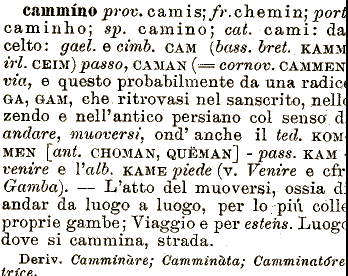 cammino prov. camis; fr. chemin; port
caminho; sp. camino; cat. camí: da
celto: gael. e cimb. CAM (bass. bret. KAMM
irl. CEIM) passo, CAMAN (= cornov. CAMMEN
via, e questo probabilmente da una radice
GA, GAM, che ritrovasi nel sanscrito, nello
zendo e nell'antico persiano col senso d
andare, muoversi, ond' anche il ted. KOM-
MEN [ant. CHOMAN, QUËMAN] - pass. KAM -
venire e l'alb. KAME piede (v. Venire e cfr
Gamba). — L'atto del muoversi, ossia d
andar da luogo a luogo, per lo più colle
proprie gambe; Viaggio e per estens. Luogo
dove si cammina, strada.
Deriv. Camminàre; Camminàta; Camminatóre
trice.